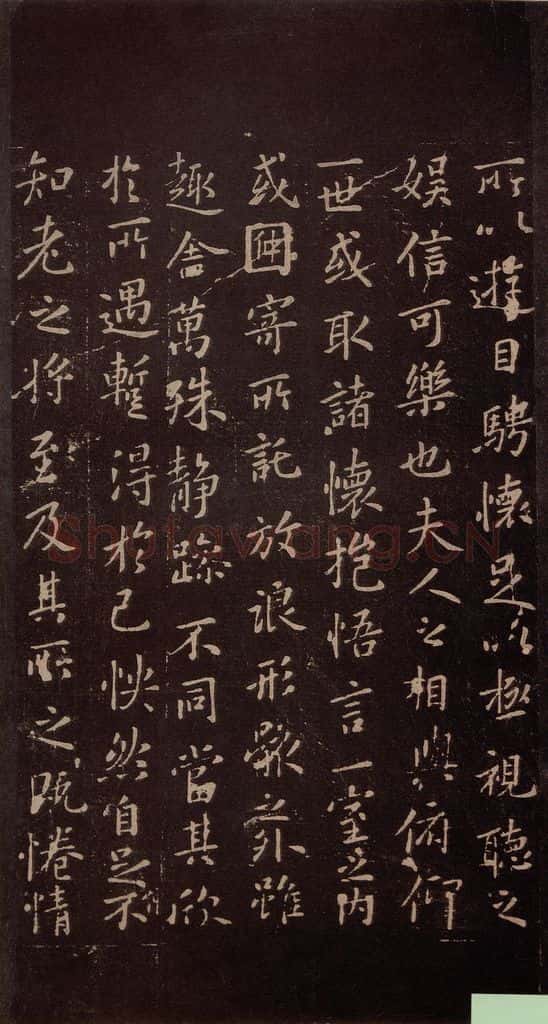 所以遊目騁懷足以極視聽之
娛信可樂也夫人之相與俯仰
一世或取諸懷抱悟言一室之內
或因寄所託放浪形骸之外雖
趣舍萬殊靜躁不同當其欣
於所遇蹔得於己怏然自足不
知老之將至及其所之既惓情
Shufawang.CN